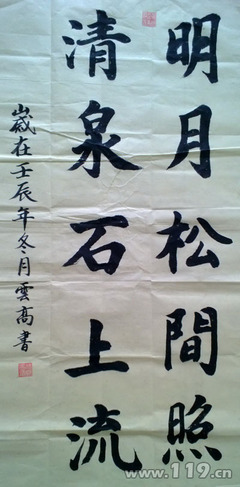 明月松間照
清泉石上流
歲在壬辰年冬月雲高書
www.119.cn